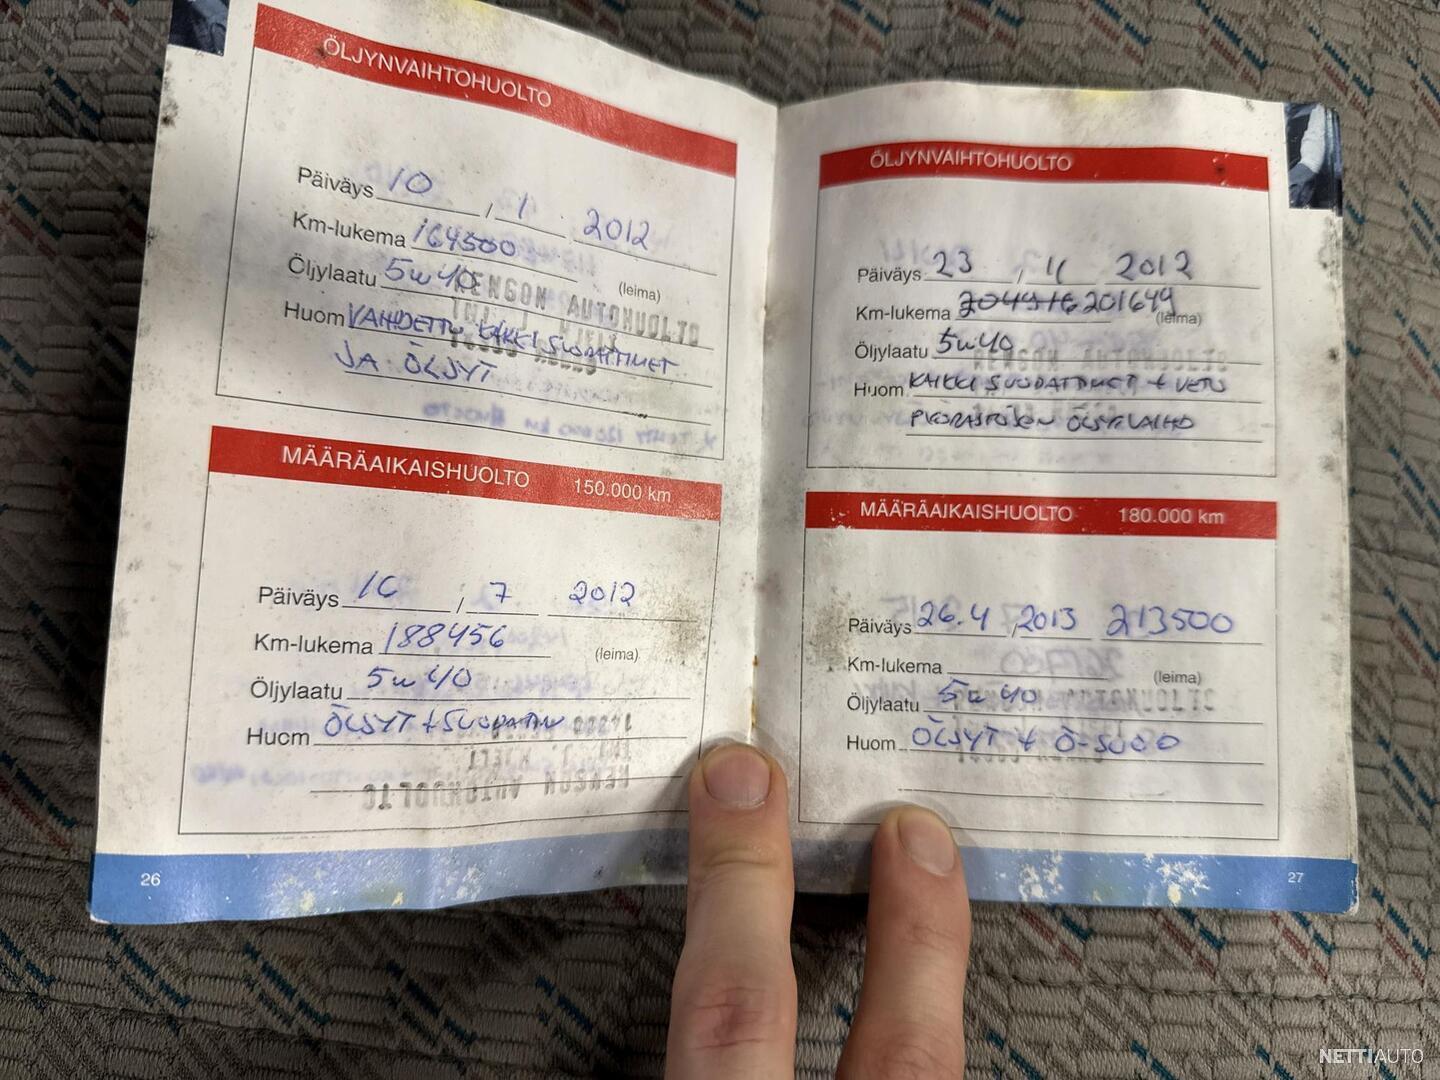 ÖLJYNVAIHTOHUOLTO
Päiväys 10 / 1 2012
Km-lukema 164500
Öljylaatu 5w40 (leima)
RENGON AUTOHUOLTO
Huom VAIHDETTU KAIKKI SUODATTIMET
JA ÖLJYT
MÄÄRÄAIKAISHUOLTO 150.000 km
Päiväys 16 / 7 2012
Km-lukema 188456 (leima)
Öljylaatu 5w40
Huom ÖLJYT + SUODATIN
26
ÖLJYNVAIHTOHUOLTO
Päiväys 23 / 11 2012
Km-lukema 201649 (leima)
Öljylaatu 5w40
RENGON AUTOHUOLTO
Huom KAIKKI SUODATTIMET + VETO
PYÖRÄSTÖSEN ÖLJYLVAIHD
MÄÄRÄAIKAISHUOLTO 180.000 km
Päiväys 26.4 / 2013 213500
Km-lukema (leima)
Öljylaatu 5w40
Huom ÖLJYT + Ö-SUOD
27
NETTIAUTO